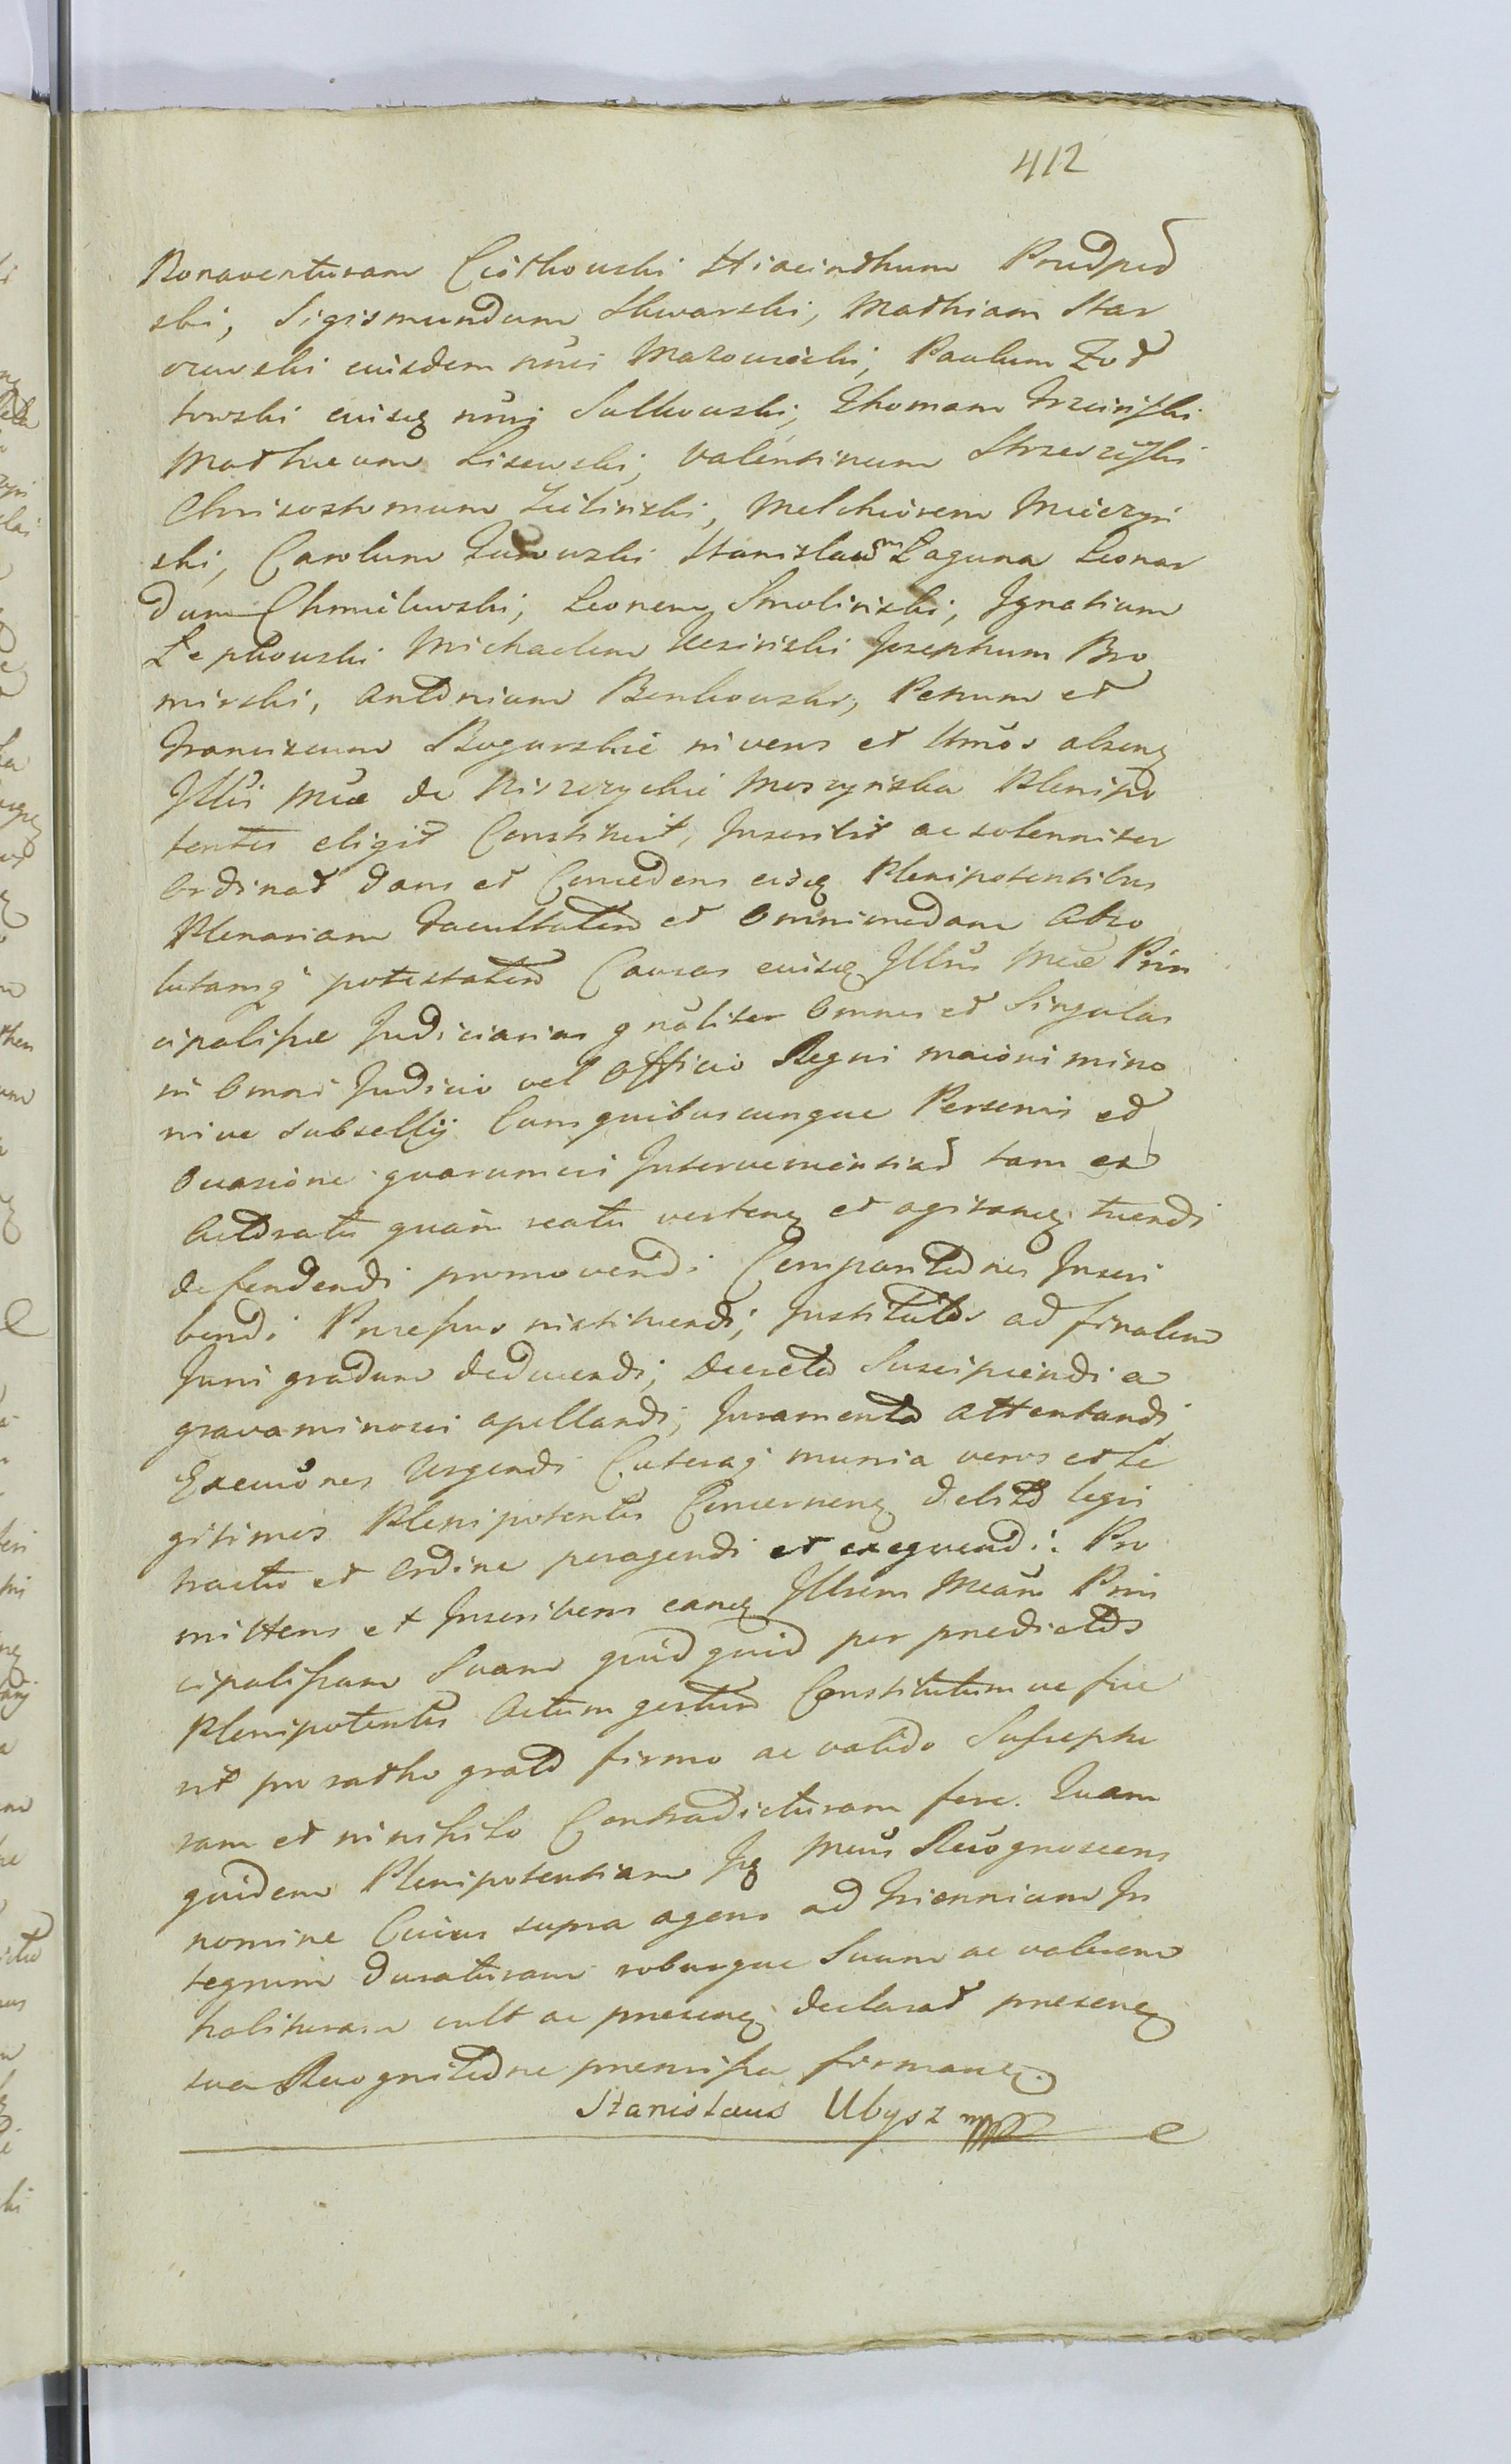 412
Bonaventuram Ciołkowski Hiacinthum Prudped
ski, Sigismundum Skwarski, Mathiam Star
orewski eiusdem nnis Mazowiecki, Paulum Zół
towski eiusq nnis Sulkowski, Thomam Trzcinski
Mathæum Lisewski, Valentinum Strzeszyski
Chrisostomum Zieliński, Melchiorem Mieczyń
ski, Carolum Zurowski Stanislaum Łaguna Leonar
dum Chmielewski, Leonem Smoliński, Ignatium
Łepkowski Michaelem Uszinski Josephum Bro
mirski, Antonium Bienkowski, Petrum et
Franciscum Rogurskie iuvens et Umos absenq
Illris Mcæ de Kiszczyckie Moszyńska Plenipo
tentes eligit Constituit, Inscribit ac solenniter
Ordinat dans et Concedens eisq Plenipotentibus
Plenariam Facultatem et Omnimodam Abso
lutamq potestatem Causas eiusq Illris Mcæ Prin
cipalissæ Judiciarias gnaliter Omnes et Singulas
in Omni Judicio vel Officio Regni maiori mino
rive subsellij Cumquibuscunque Personis et
Occasione quarumvis Intervenientiad tam ex
Actoratu quam reatu vertenq et agitanq tuendi
defendendi promovendi Comparitiones Inscri
bendi Processus instituendi, Institutos ad finalem
Juris gradum deducendi, Decreta Suscipiendi a
gravaminosis apellandi, Juramenta attentandi
Execuones Urgendi Cæteraq munia veros et le
gitimos Plenipotentes Concernenq debito legis
tractu et Ordine peragendi et exequendi: Pro
mittens et Inscribens eanq Illrem Mcam Prin
cipalissam Suam quidquid per prædictos
Plenipotentes Actum gestum Constitutumve fue
rit pro ratho grato firmo ac valido Suscептu
ram et ninihilo Contradicturam fore. Quam
quidem Plenipotentiam Iq Mcus Recognoscens
nomine Cuius supra agens ad triennium In
tegrum duraturam roburque Suum ac valorem
habituram vult ac præsenq declarat præsenq
sua Recognitione præmissa firmanq.
Stanislaus Ubysz mpp